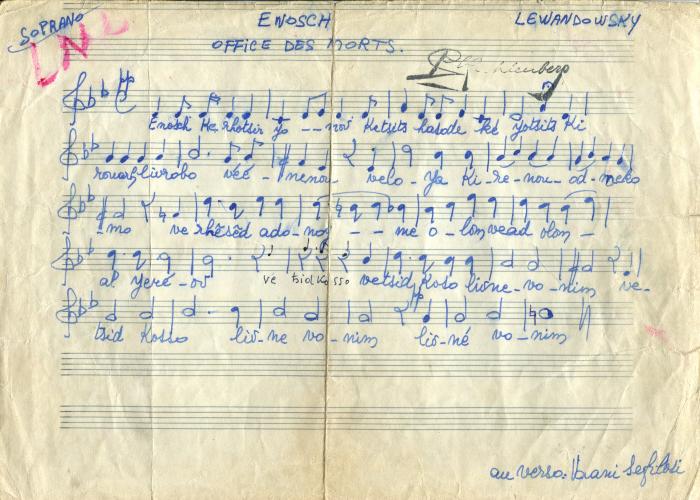 SOPRANO
ENOSCH
LEWANDOWSKY
LNL
OFFICE DES MORTS.
pp
Enosch Ke rhotsir yo - - nov Ketsits hasode ké yotsits Ki
rouah livrobo véé - nenou - velo - ya Ki - re - nou - od - meko
- mo ve rhêsêd ado - noy - - me o - lom vead olom -
al yeré - ov ve tsid Ko sso vetsid Koso livne - vo - nim ve -
pp
tsid Kosso liv - ne vo - nim liv - né vo - nim
au verso: